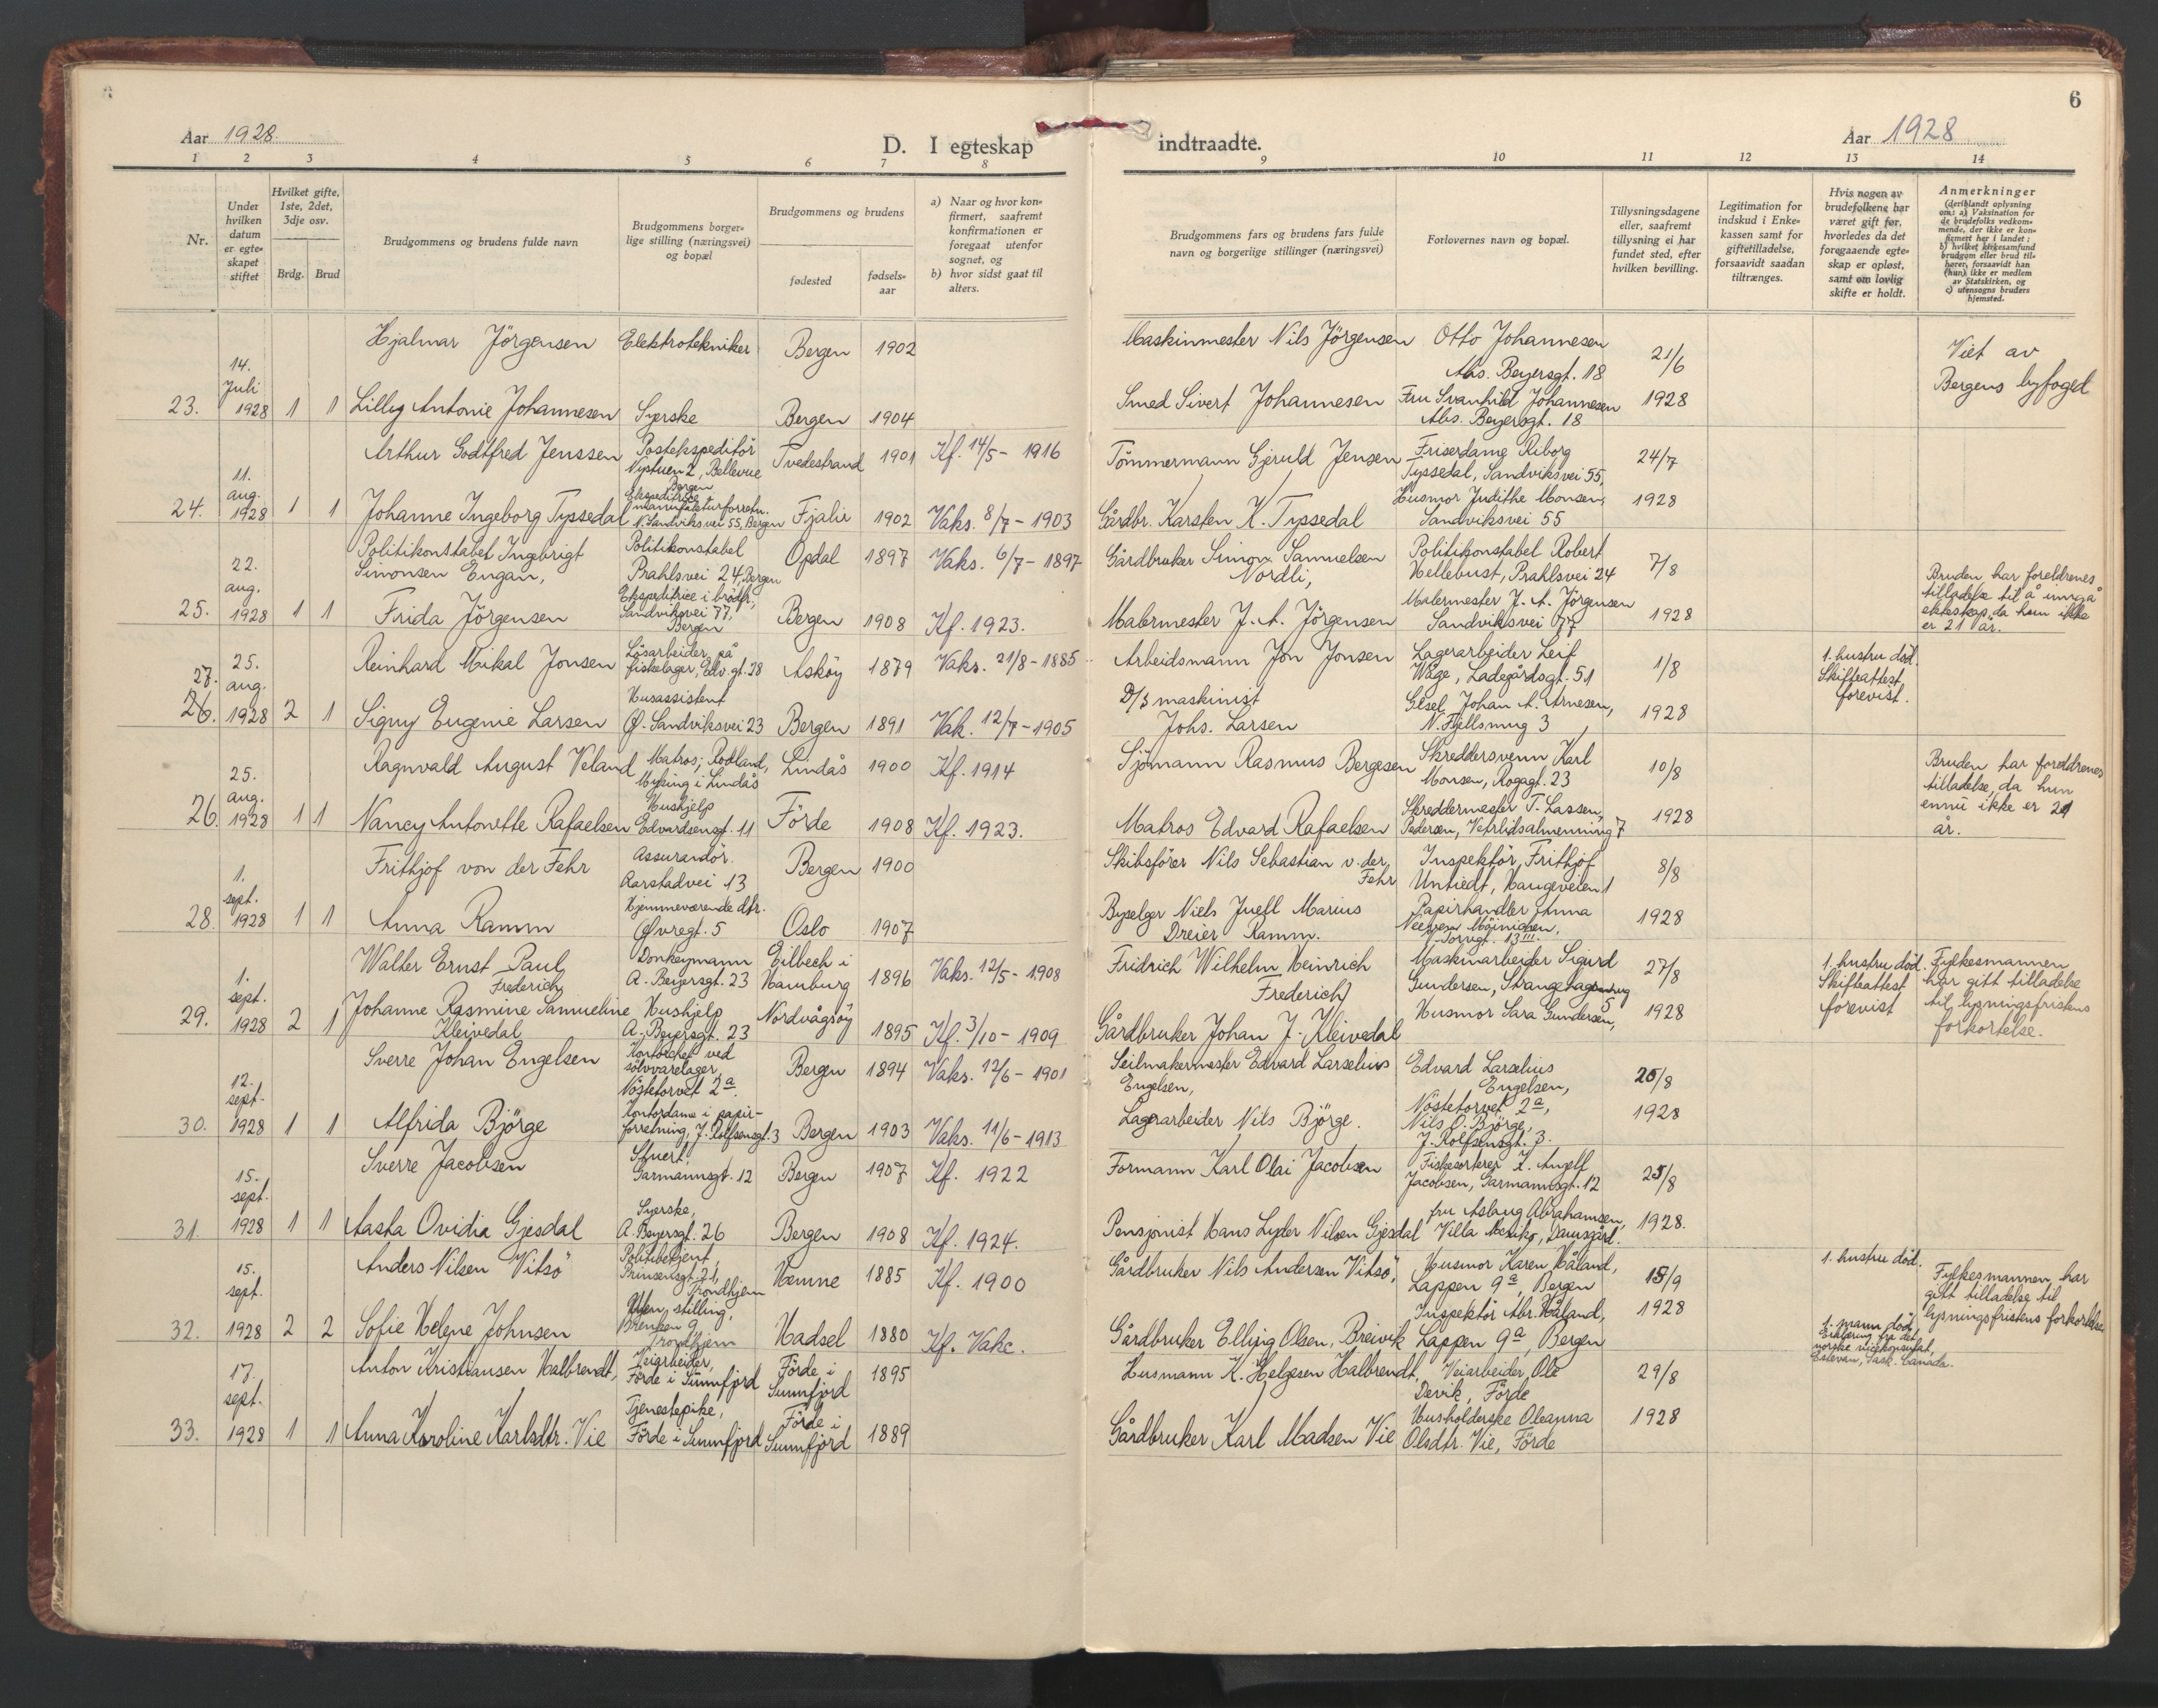 6
Aar 1928.
D. I egteskap indtraadte.
Aar 1928
1 2 3 4 5 6 7 8 9 10 11 12 13 14
Nr.
Under hvilken datum er egteskapet stiftet
Hvilket gifte, 1ste, 2det, 3dje osv.
Brdg. Brud
Brudgommens og brudens fulde navn
Brudgommens borgerlige stilling (næringsvei) og bopæl
Brudgommens og brudens
fødested
fødselsaar
a) Naar og hvor konfirmert, saafremt konfirmationen er foregaat utenfor sognet, og
b) hvor sidst gaat til alters.
Brudgommens fars og brudens fars fulde navn og borgerlige stillinger (næringsvei)
Forlovernes navn og bopæl.
Tillysningsdagene eller, saafremt tillysning ei har fundet sted, efter hvilken bevilling.
Legitimation for indskud i Enkekassen samt for giftetilladelse, forsaavidt saadan tiltrænges.
Hvis nogen av brudefolkene har været gift før, hvorledes da det foregaaende egteskap er opløst, samt om lovlig skifte er holdt.
Anmerkninger (deriblandt oplysning om: a) Vaksination for de brudefolks vedkommende, der ikke er konfirmert her i landet; b) hvilket kirkesamfund brudgom eller brud tilhører, forsaavidt han (hun) ikke er medlem av Statskirken, og c) utensogns bruders hjemsted.
23. 14. Juli 1928 1 1
Hjalmar Jörgensen Elektrotekniker Bergen 1902
Maskinmester Nils Jörgensen Otto Johannesen Abs. Beyersgt. 18 21/6
Viet av Bergens byfoged
Lilly Antonie Johannesen Syerske Bergen 1904
Smed Sivert Johannesen Fru Svanhild Johannesen Abs. Beyersgt. 18 1928
24. 11. aug. 1928 1 1
Arthur Godtfred Jenssen Postekspeditör Nystuen 2, Bellevue Bergen Tvedestrand 1901 Kf. 14/5 - 1916
Tömmermann Gjeruld Jensen Friserdame Riborg Tyssedal, Sandviksvei 55, 24/7
Johanne Ingeborg Tyssedal Ekspeditrice i manufakturforretn. N. Sandviksvei 55, Bergen Fjalir 1902 Vaks. 8/7 - 1903
Gårdbr. Karsten K. Tyssedal Husmor Judithe Monsen, Sandviksvei 55 1928
25. 22. aug. 1928 1 1
Politikonstabel Ingebrigt Simonsen Engan, Politikonstabel Prahlsvei 24, Bergen Opdal 1897 Vaks. 6/7 - 1897
Gårdbruker Simon Samuelsen Nordli, Politikonstabel Robert Hellebust, Prahlsvei 24 7/8
Frida Jörgensen Ekspeditrice i brödfr., Sandviksvei 77, Bergen Bergen 1908 Kf. 1923.
Malermester J. A. Jörgensen Malermester J. A. Jörgensen Sandviksvei 77 1928
Bruden har foreldrenes tilladelse til å inngå ekteskap, da hun ikke er 21 år.
27. 26. 25. aug. 1928 2 1
Reinhard Mikal Jonsen Lösarbeider på fiskelager, Edv. gt. 28 Asköy 1879 Vaks. 21/8 - 1885
Arbeidsmann Jon Jonsen Lagerarbeider Leif Wåge, Ladegårdsgt. 51 1/8
1. hustru död. Skifteattest forevist.
Signy Eugenie Larsen Husassistent Ø. Sandviksvei 23 Bergen 1891 Vak. 12/7 - 1905
D/S maskinist Johs. Larsen Johan A. Arnesen, N. Fjellsmug 3 1928
26. 25. aug. 1928 1 1
Ragnvald August Veland Matros; Rödland, Myking i Lindås Lindås 1900 Kf. 1914
Sjömann Rasmus Bergesen Skreddersvenn Karl Monsen, Rogagt. 23 10/8
Nancy Antonette Rafaelsen Hushjelp Edvardsensgt. 11 Förde 1908 Kf. 1923.
Matros Edvard Rafaelsen Skreddermester T. Lassen, Pedersen, Vetrlidsalmenning 7 1928
Bruden har foreldrenes tilladelse, da hun ennu ikke er 21 år.
28. 1. sept. 1928 1 1
Frithjof von der Fehr Assurandör. Aarstadvei 13 Bergen 1900
Skibsförer Nils Sebastian v. der Fehr Inspektör, Frithjof Untiedt, Haugeveien 1 8/8
Anna Ramm Hjemmeværende dtr. Øvregt. 5 Oslo 1907
Byselger Niels Juell Marius Dreier Ramm. Papirhandler Anna Möinichen, Torvgt. 13 III. 1928
29. 1. sept. 1928 2 1
Walter Ernst Paul Frederich Donkeymann A. Beyersgt. 23 Eilbech i Hamburg 1896 Vaks. 12/5 - 1908
Fridrich Wilhelm Heinrich Frederich Maskinarbeider Sigurd Gundersen, Strangehagen 27/8
1. hustru död. Skifteattest forevist
Fylkesmannen har gitt tilladelse til lysningsfristens forkortelse.
Johanne Rasmine Samueline Kleivedal Hushjelp A. Beyersgt. 23 Nordvågsöy 1895 Kf. 3/10 - 1909
Gårdbruker Johan J. Kleivedal Husmor Sara Gundersen, 5 1928
30. 12. sept. 1928 1 1
Sverre Johan Engelsen Kontorchef ved sölvvarelager, Nöstetorvet 2a. Bergen 1894 Vaks. 12/6 - 1901
Seilmakermester Edvard Larselius Engelsen, Edvard Larselius Engelsen, Nöstetorvet 2a, 20/8
Alfrida Björge Kontordame i papirforretning, J. Rolfsensgt. 3 Bergen 1903 Vaks. 11/6 - 1913
Lagerarbeider Nils Björge. Nils O. Björge, J. Rolfsensgt. 3. 1928
31. 15. sept. 1928 1 1
Sverre Jacobsen Stuert, Garmannsgt. 12 Bergen 1907 Kf. 1922
Formann Karl Olai Jacobsen Fiskesorterer K. Angell Jacobsen, Garmannsgt. 12 25/8
Aasta Ovidia Gjesdal Syerske, A. Beyersgt. 26 Bergen 1908 Kf. 1924.
Pensjonist Hans Lyder Nilsen Gjesdal fru Aslaug Abrahamsen, Villa Mexiko, Damsgård. 1928.
32. 15. sept. 1928 2 2
Anders Nilsen Vitsö Politibetjent, Prinsensgt. 21, Trondhjem Hemne 1885 Kf. 1900
Gårdbruker Nils Andersen Vitsö, Husmor Karen Håland, Lappen 9a, Bergen 15/9
1. hustru död.
Fylkesmannen har gitt tilladelse til lysningsfristens forkortelse
Sofie Helene Johnsen Uten stilling, Brenken 9 Trondhjem Hadsel 1880 Kf. Vakc.
Gårdbruker Elling Olsen, Breivik Inspektör Abr. Håland, Lappen 9a, Bergen 1928
1. mann död, Erklæring fra det norske vicekonsulat, Estevan, Sask. Canada.
33. 17. sept. 1928 1 1
Anton Kristiansen Halbrendt, Veiarbeider, Förde i Sunnfjord Förde i Sunnfjord 1895
Husmann K. Helgesen Halbrendt, Veiarbeider, Ole Devik, Förde 29/8
Anna Karoline Karlsdtr. Vie Tjenestepike, Förde i Sunnfjord Förde i Sunnfjord 1889
Gårdbruker Karl Madsen Vie Husholderske Oleanna Olsdtr. Vie, Förde 1928